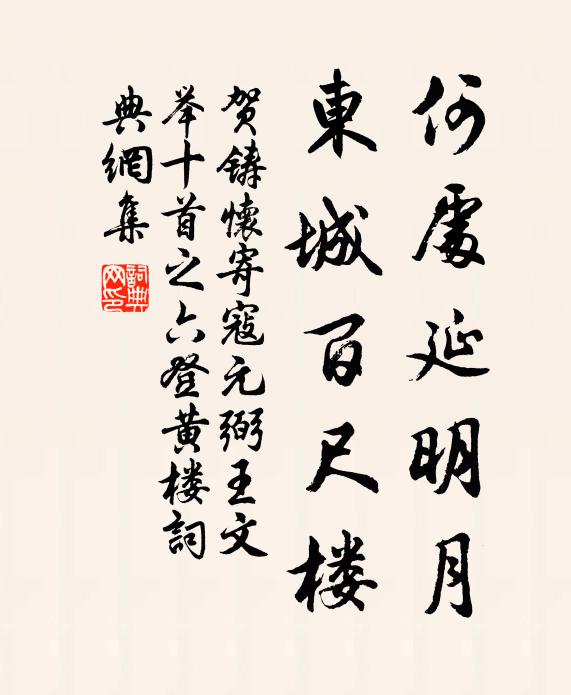 何處延明月
東城百尺楼
贺鑄懷寄寇元弼王文
举十首之六登黄楼詞
典網集
詞典网印